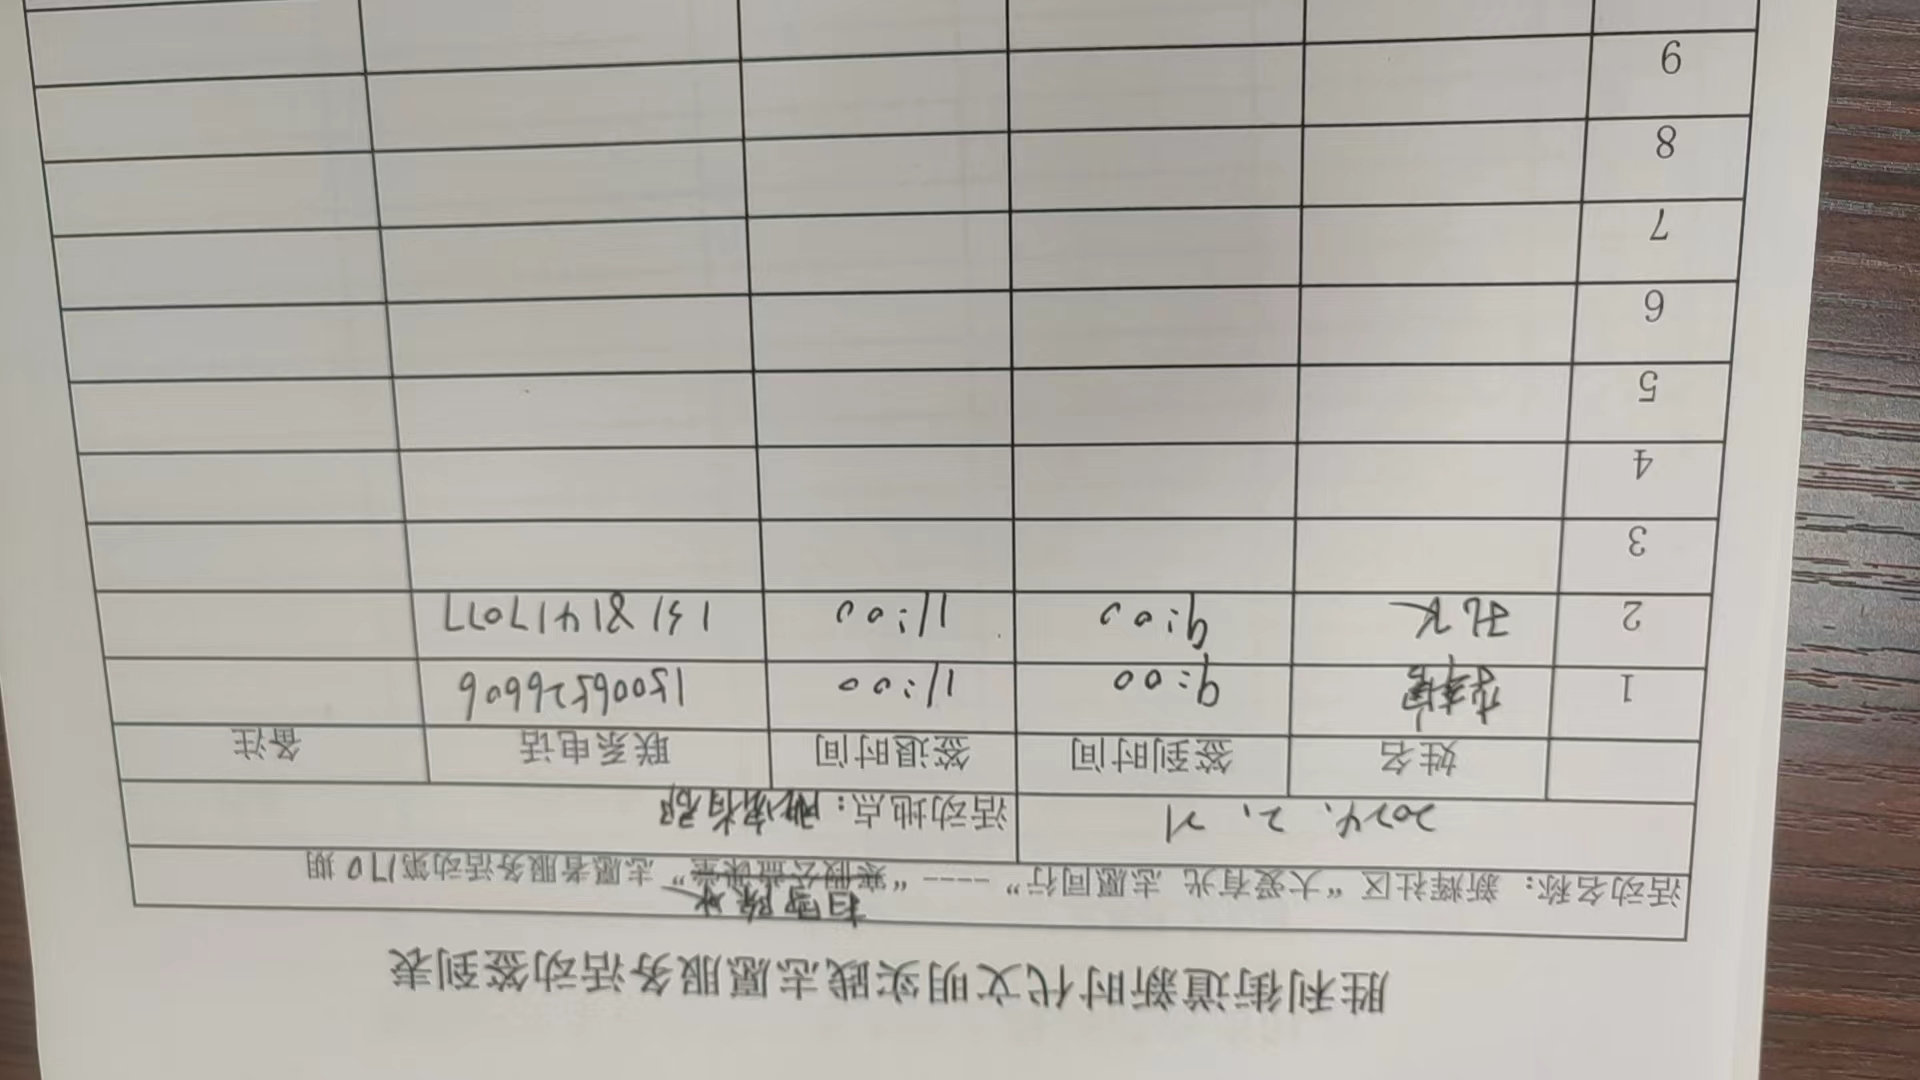 胜利街道新时代文明实践志愿服务活动签到表
扫雪除冰
活动名称：新辉社区“大爱有光 志愿同行”----“寒假公益课堂”志愿者服务活动第170期
2024.2.21 活动地点：
姓名 签到时间 签退时间 联系电话 备注
1 9:00 11:00 15006526606
2 9:00 11:00 13181417077
3
4
5
6
7
8
9